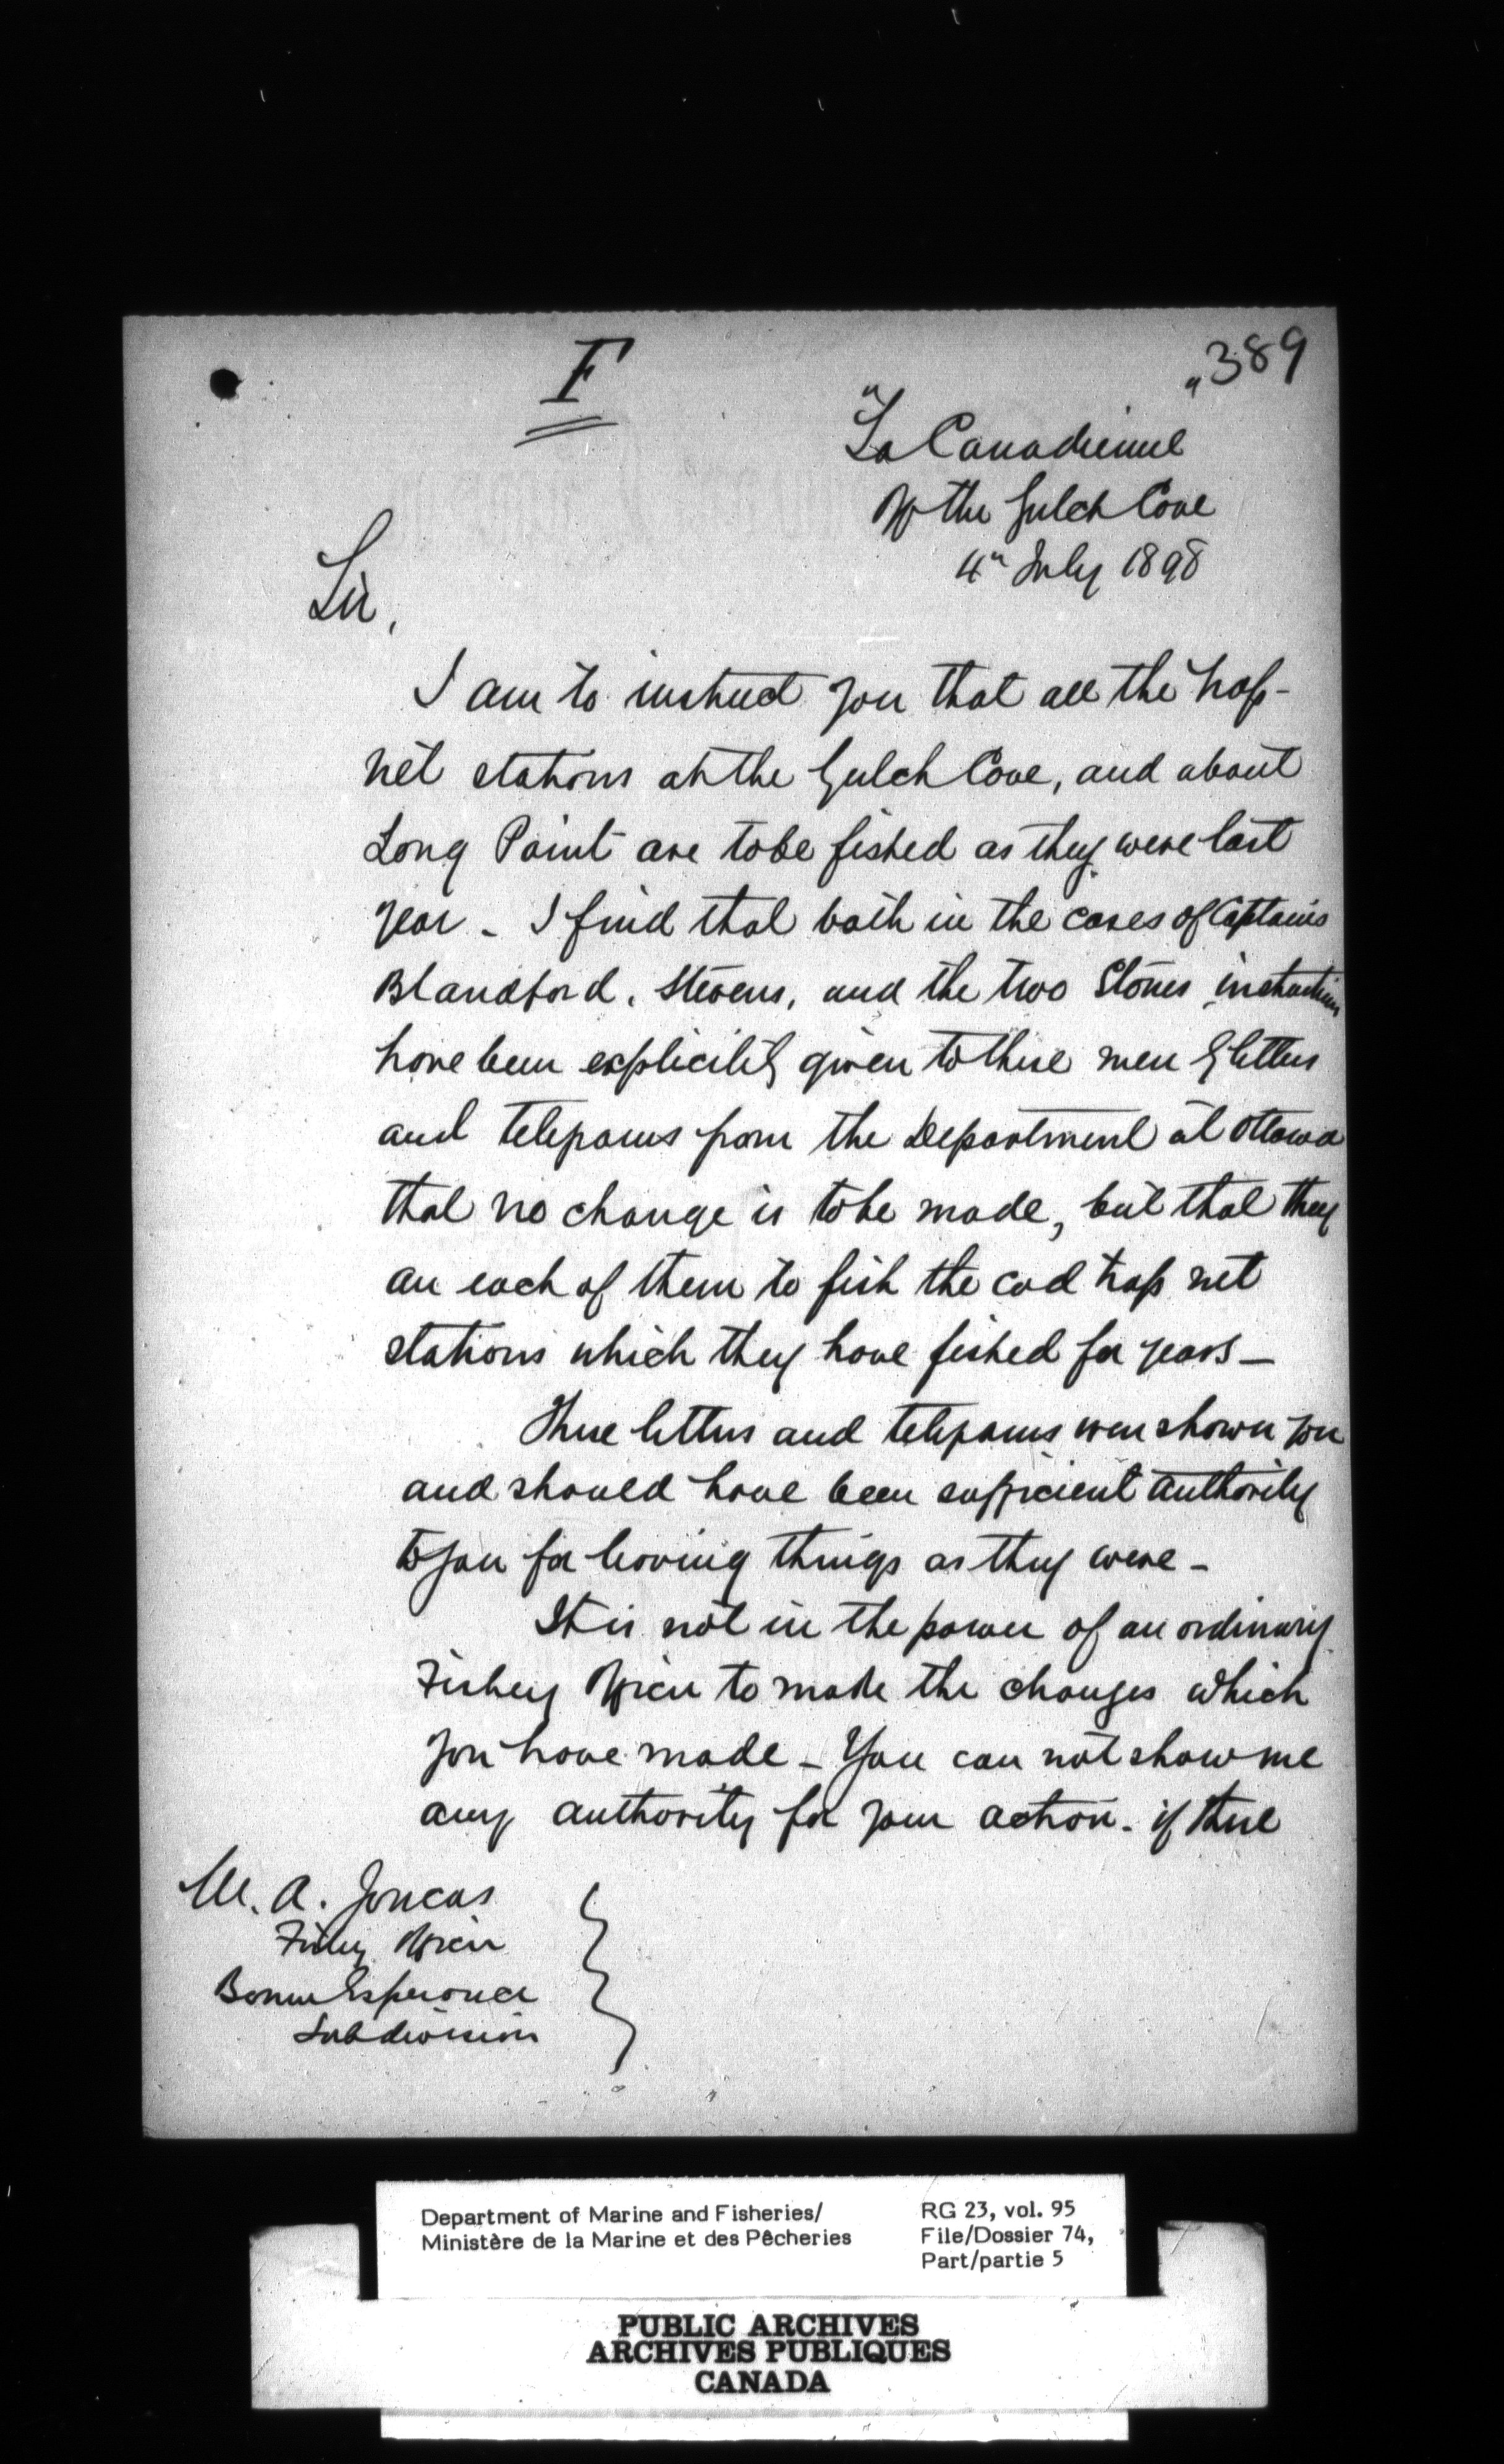 F
„389
"La Canadienne
Off the Gulch Cove
4" July 1898
Sir,
I am to instruct you that all the trap-
net stations at the Gulch Cove, and about
Long Point are to be fished as they were last
year - I find that both in the cases of Captains
Blandford, Stevens, and the two Stones instructions
have been explicitly given to these men by letters
and telegrams from the Department at Ottawa
that no change is to be made, but that they
are each of them to fish the cod trap net
stations which they have fished for years -
These letters and telegrams were shown you
and should have been sufficient authority
to you for leaving things as they were -
It is not in the power of an ordinary
Fishery Officer to make the changes which
you have made - You can not show me
any authority for your action. if there
M. A. Joncas
Fishery Officer
Bonne Esperance
Subdivision
Department of Marine and Fisheries/
Ministère de la Marine et des Pêcheries
RG 23, vol. 95
File/Dossier 74,
Part/partie 5
PUBLIC ARCHIVES
ARCHIVES PUBLIQUES
CANADA